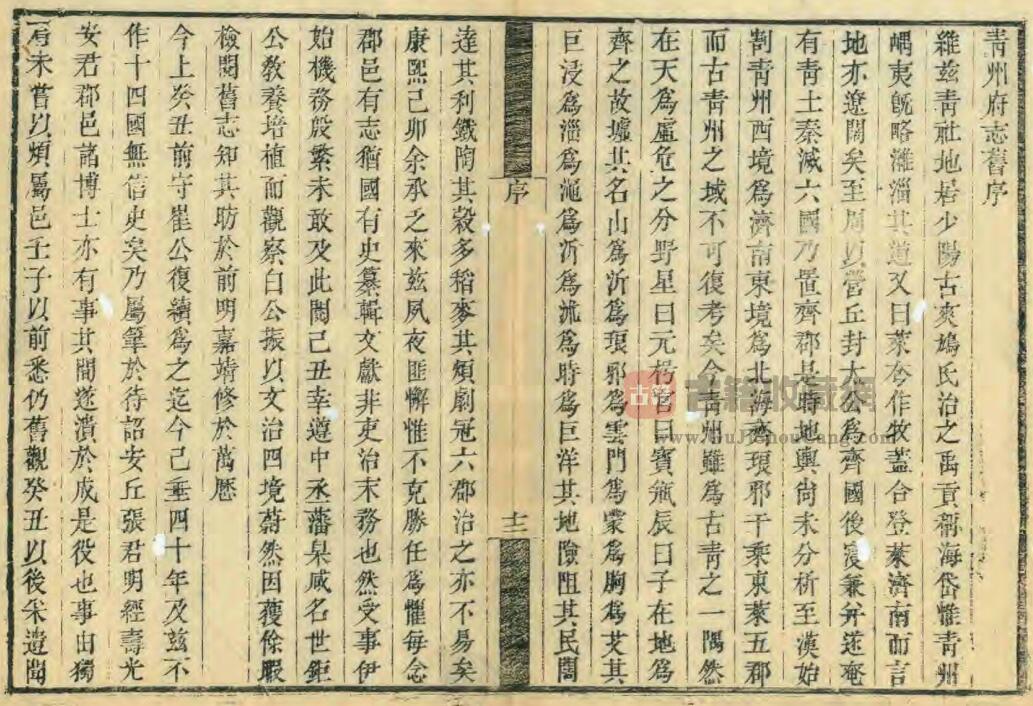 青州府志舊序
維茲青社地居少陽古爽鳩氏治之禹貢稱海岱惟青州
嵎夷旣略濰淄其道又曰萊夸作牧蓋合登萊濟南而言
地亦遼闊矣至周以營丘封太公爲齊國後寖兼并遂奄
有青土秦滅六國乃置齊郡是時地輿尙未分析至漢始
割青州西境爲濟南東境爲北海齊琅邪千乘東萊五郡
而古青州之域不可復考矣今青州雖爲古青之一隅然
在天爲虛危之分野星曰元枵宿曰寶瓶辰曰子在地爲
齊之故墟其名山爲沂爲琅邪爲雲門爲蒙爲朐爲艾其
巨浸爲淄爲澠爲沂爲沭爲時爲巨洋其地險阻其民闊
序
十二
達其利鐵陶其穀多稻麥其煩劇冠六郡治之亦不易矣
康熙己卯余承乏來茲夙夜匪懈惟不克勝任爲懼每念
郡邑有志猶國有史纂輯文獻非吏治末務也然受事伊
始機務殷繁未敢及此閱己丑幸遵中丞藩臬咸名世鉅
公教養培植而觀察白公振以文治四境蔚然因獲餘暇
檢閱舊志知其昉於前明嘉靖修於萬曆
今上癸丑前守崔公復續爲之迄今已垂四十年及茲不
作十四國無信史矣乃屬筆於待詔安丘張君明經壽光
安君郡邑諸博士亦有事其間遂潰於成是役也事由獨
肩未嘗以煩屬邑壬子以前悉仍舊觀癸丑以後采遺聞
古籍
古籍收藏網
www.GuJiShouCang.com